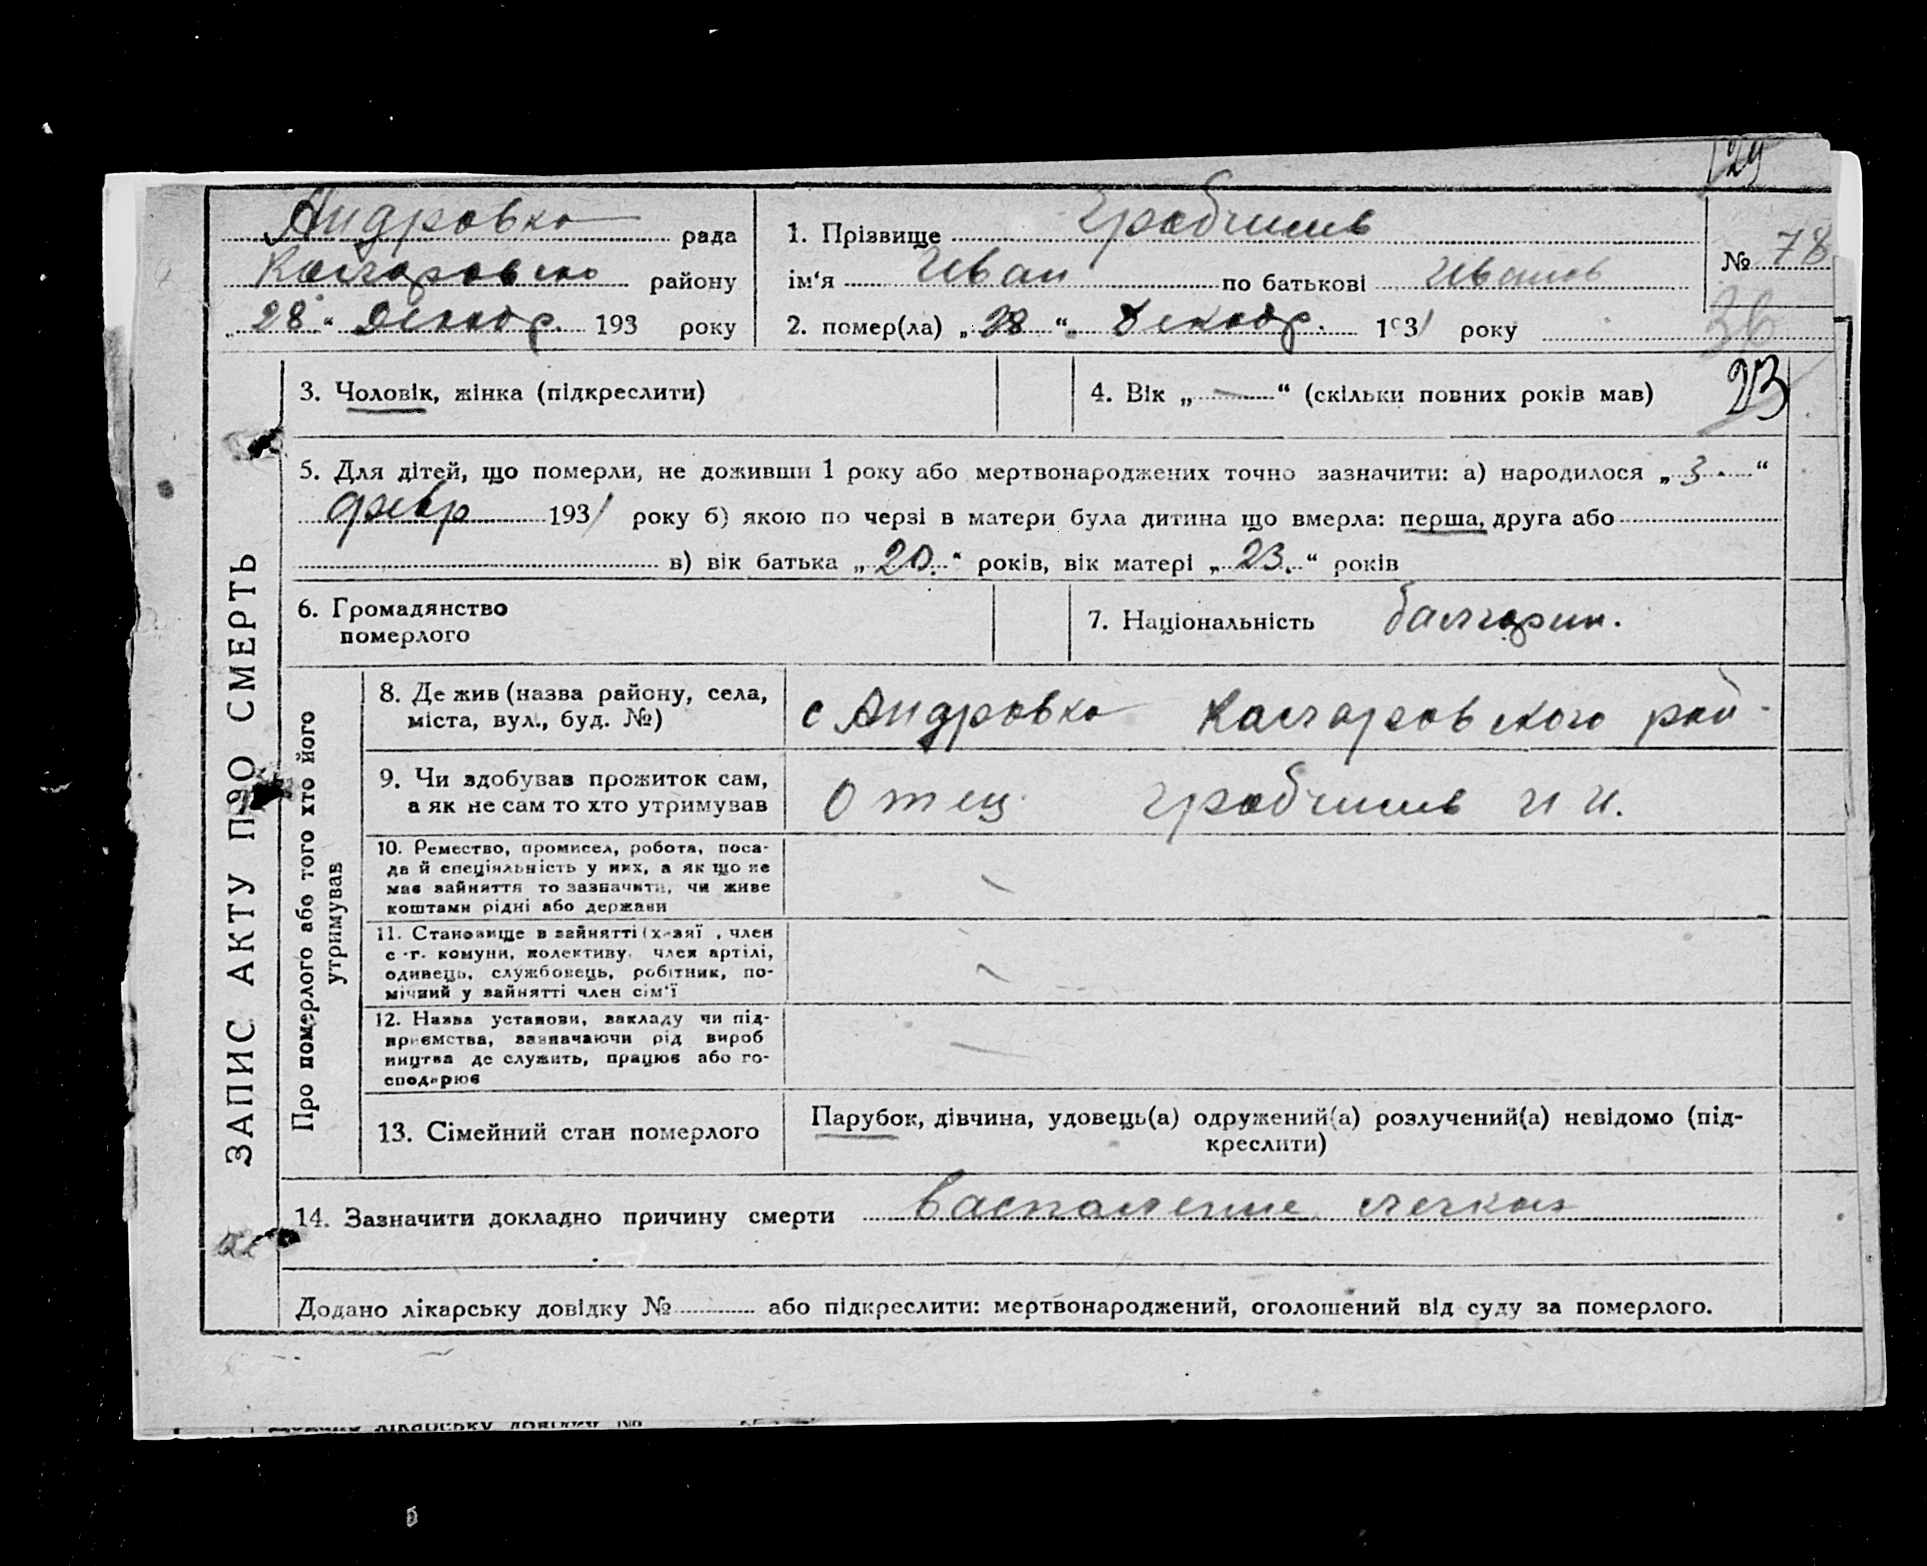 129
Андровка рада
Колгоровско району
„28“ Декабр. 193 року
1. Прізвище Грабчилев
ім‘я Иван по батькові Иванов
2. помер(ла) „28“ Декабр. 1931 року
№ 78
36
3. Чоловік, жінка (підкреслити)
4. Вік „—“ (скільки повних років мав)
23
5. Для дітей, що померли, не доживши 1 року або мертвонароджених точно зазначити: а) народилося „3.“
февр 1931 року б) якою по черзі в матери була дитина що вмерла: перша, друга або
в) вік батька „20.“ років, вік матері „23.“ років
6. Громадянство
померлого
7. Національність болгарин.
ЗАПИС АКТУ ПРО СМЕРТЬ
Про померлого або того хто його
утримував
8. Де жив (назва району, села,
міста, вул., буд. №)
с Андровка Колгаровского рай.
9. Чи здобував прожиток сам,
а як не сам то хто утримував
Отец Грабчилев И И.
10. Ремество, промисел, робота, поса-
да й спеціяльність у них, а як що не
має зайняття то зазначити, чи живе
коштами рідні або держави
11. Становище в зайнятті (х-зяї , член
с -г. комуни, колективу, член артілі,
одинець, службовець, робітник, по-
мічний у зайнятті член сім‘ї
12. Назва установи, закладу чи під-
приємства, зазначаючи рід вироб
ництва де служить, працює або го-
сподарює
13. Сімейний стан померлого
Парубок, дівчина, удовець(а) одружений(а) розлучений(а) невідомо (під-
креслити)
14. Зазначити докладно причину смерти Васполение легких
Додано лікарську довідку № або підкреслити: мертвонароджений, оголошений від суду за померлого.